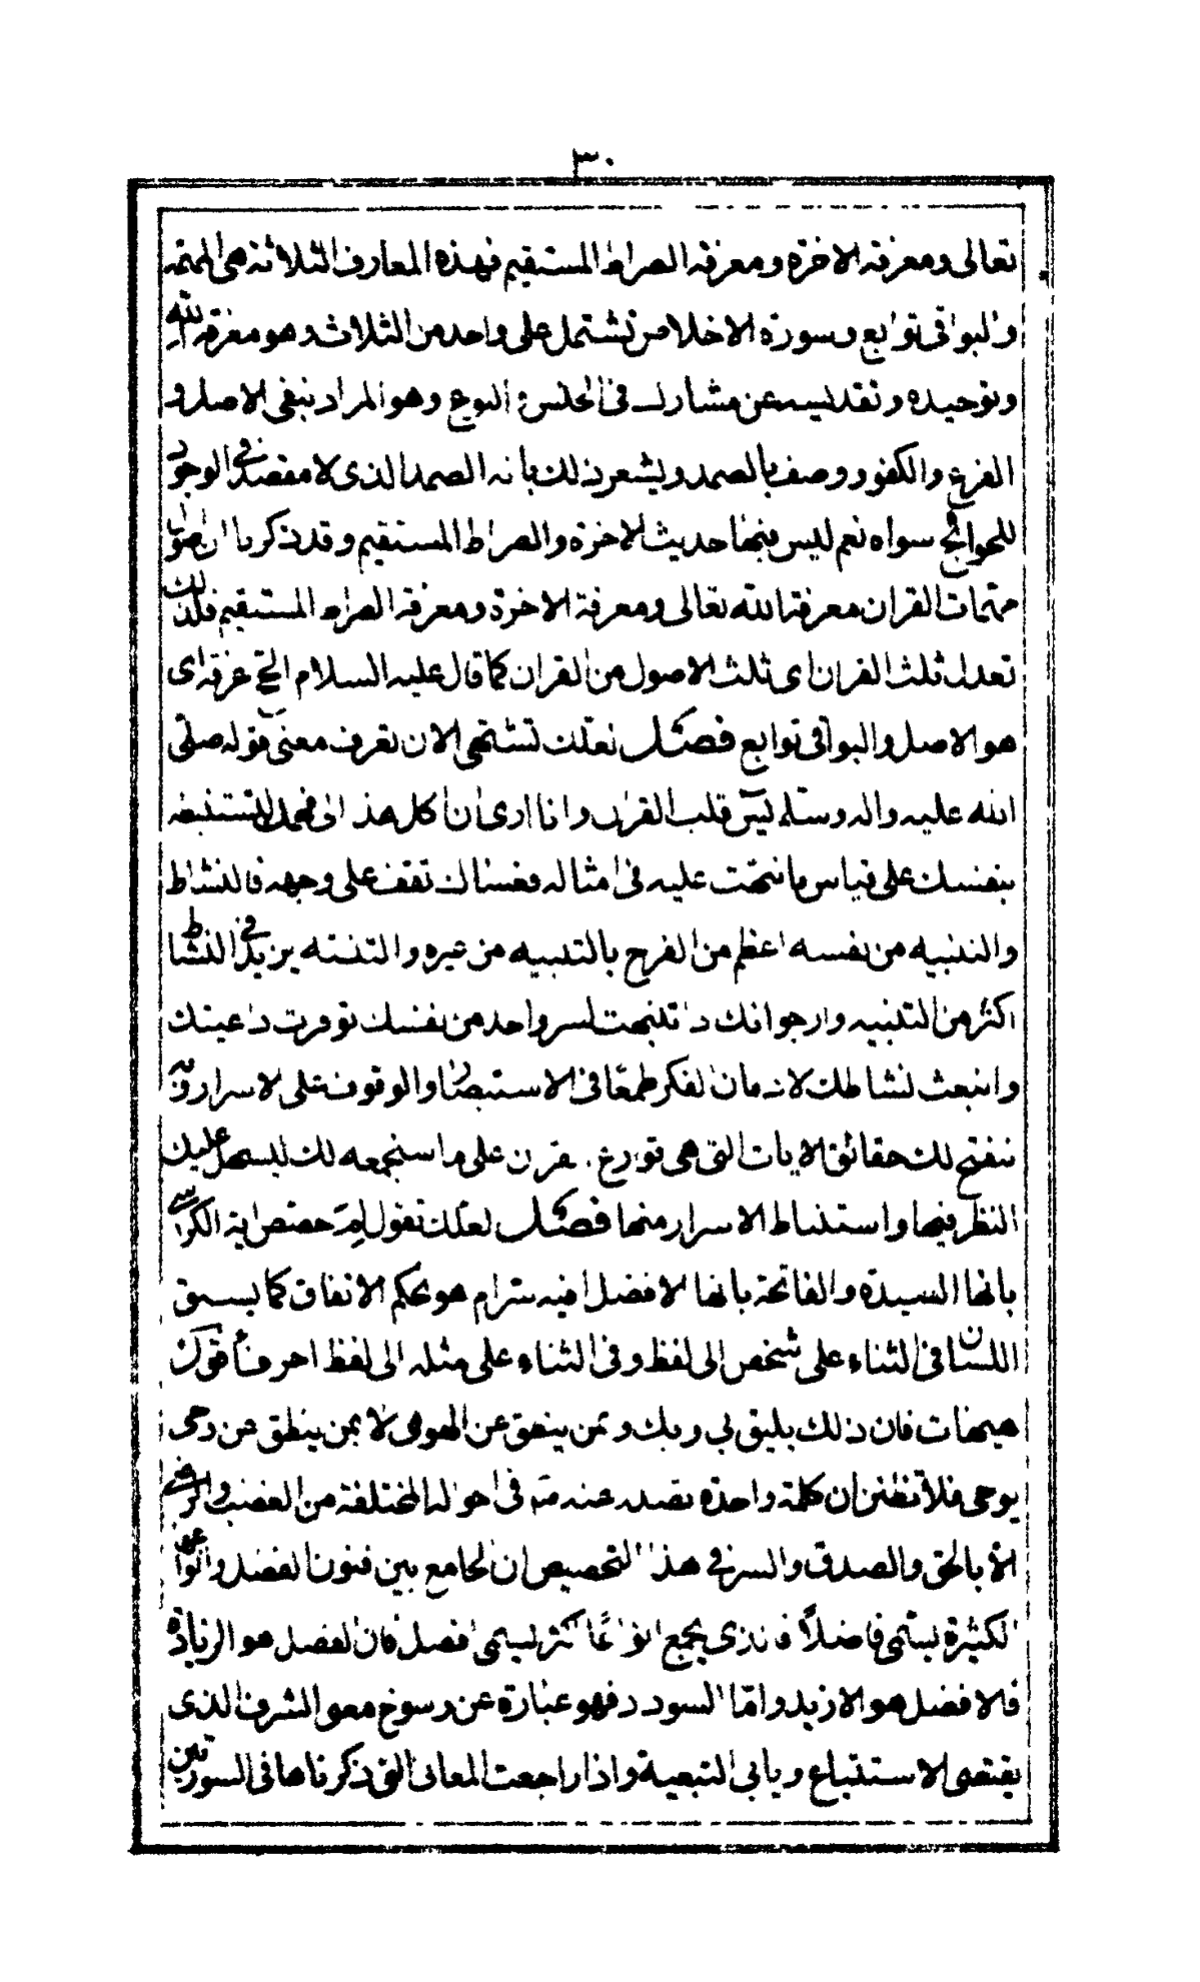 ٣٠
تعالى ومعرفة الاخرة ومعرفة الصراط المستقيم فهذه المعارف الثلاثة هى المهمة
والبواقى توابع وسورة الاخلاص تشتمل على واحد من الثلاث وهو معرفة الله
وتوحيده وتقديسه عن مشارك فى الجنس والنوع وهو المراد بنفى الاصل و
الفرع والكفو ووصفه بالصمد ويشعر ذلك بانه الصمد الذى لا مقصد فى الوجود
للحوائج سواه نعم ليس فيها حديث الاخرة والصراط المستقيم وقد ذكرنا ان اصول
مهمات القران معرفة الله تعالى ومعرفة الاخرة ومعرفة الصراط المستقيم فلذلك
تعدل ثلث القران اى ثلث الاصول من القران كما قال عليه السلام الحج عرفة اى
هو الاصل والبواقى توابع فصل لعلك تشتهى الان تعرف معنى قوله صلى
الله عليه واله وسلم يس قلب القران وانا ارى ان اكل هذا الى فهمك لتستنبطه
بنفسك على قياس ما نبهت عليه فى امثاله فعساك تقف على وجهه فالنشاط
والتنبيه من نفسه اعظم من الفرح بالتنبيه من غيره والتنبه يزيد فى النشاط
اكثر من التنبيه وارجو انك اذا تنبهت لسر واحد من نفسك توفرت داعيتك
وانبعث نشاطك لادمان الفكر طمعا فى الاستبصار والوقوف على الاسرار وبه
تنفتح لك حقائق الايات التى هى قوارع القران على ما سنجمعه لك ليسهل عليك
النظر فيها واستنباط الاسرار منها فصل لعلك تقول لم خصص اية الكرسى
بانها السيدة والفاتحة بانها الافضل افيه سر ام هو بحكم الاتفاق كما يسبق
اللسان فى الثناء على شخص الى لفظ وفى الثناء على مثله الى لفظ اخر فأقول
هيهات فان ذلك يليق بى وبك وبمن ينطق عن الهوى لا بمن ينطق عن وحى
يوحى فلا تظنن ان كلمة واحدة تصدر عنه ص فى احواله المختلفة من الغضب والرضى
الا بالحق والصدق والسر فى هذا التخصيص ان الجامع بين فنون الفضل وانواعها
الكثيرة يسمى فاضلاً فالذى يجمع انواعًا اكثر يسمى افضل فان الفضل هو الزيادة
فالافضل هو الازيد واما السودد فهو عبارة عن رسوخ معنى الشرف الذى
يقتضى الاستتباع ويابى التبعية واذا راجعت المعانى التى ذكرناها فى السورتين